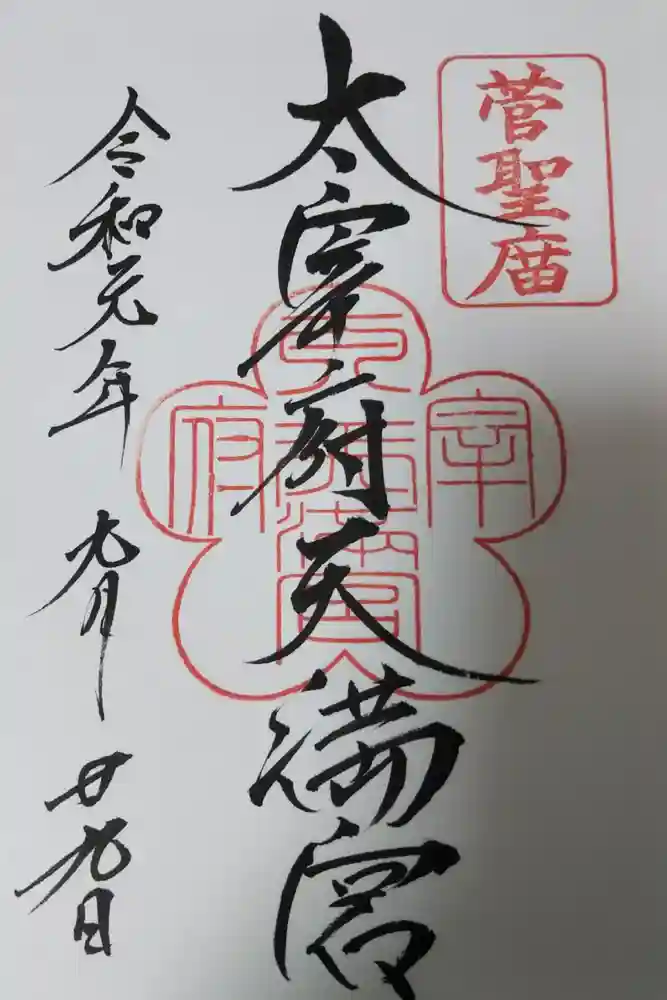 菅聖庿
太宰府天満宮
太宰府天満宮
令和元年 九月 廿九日